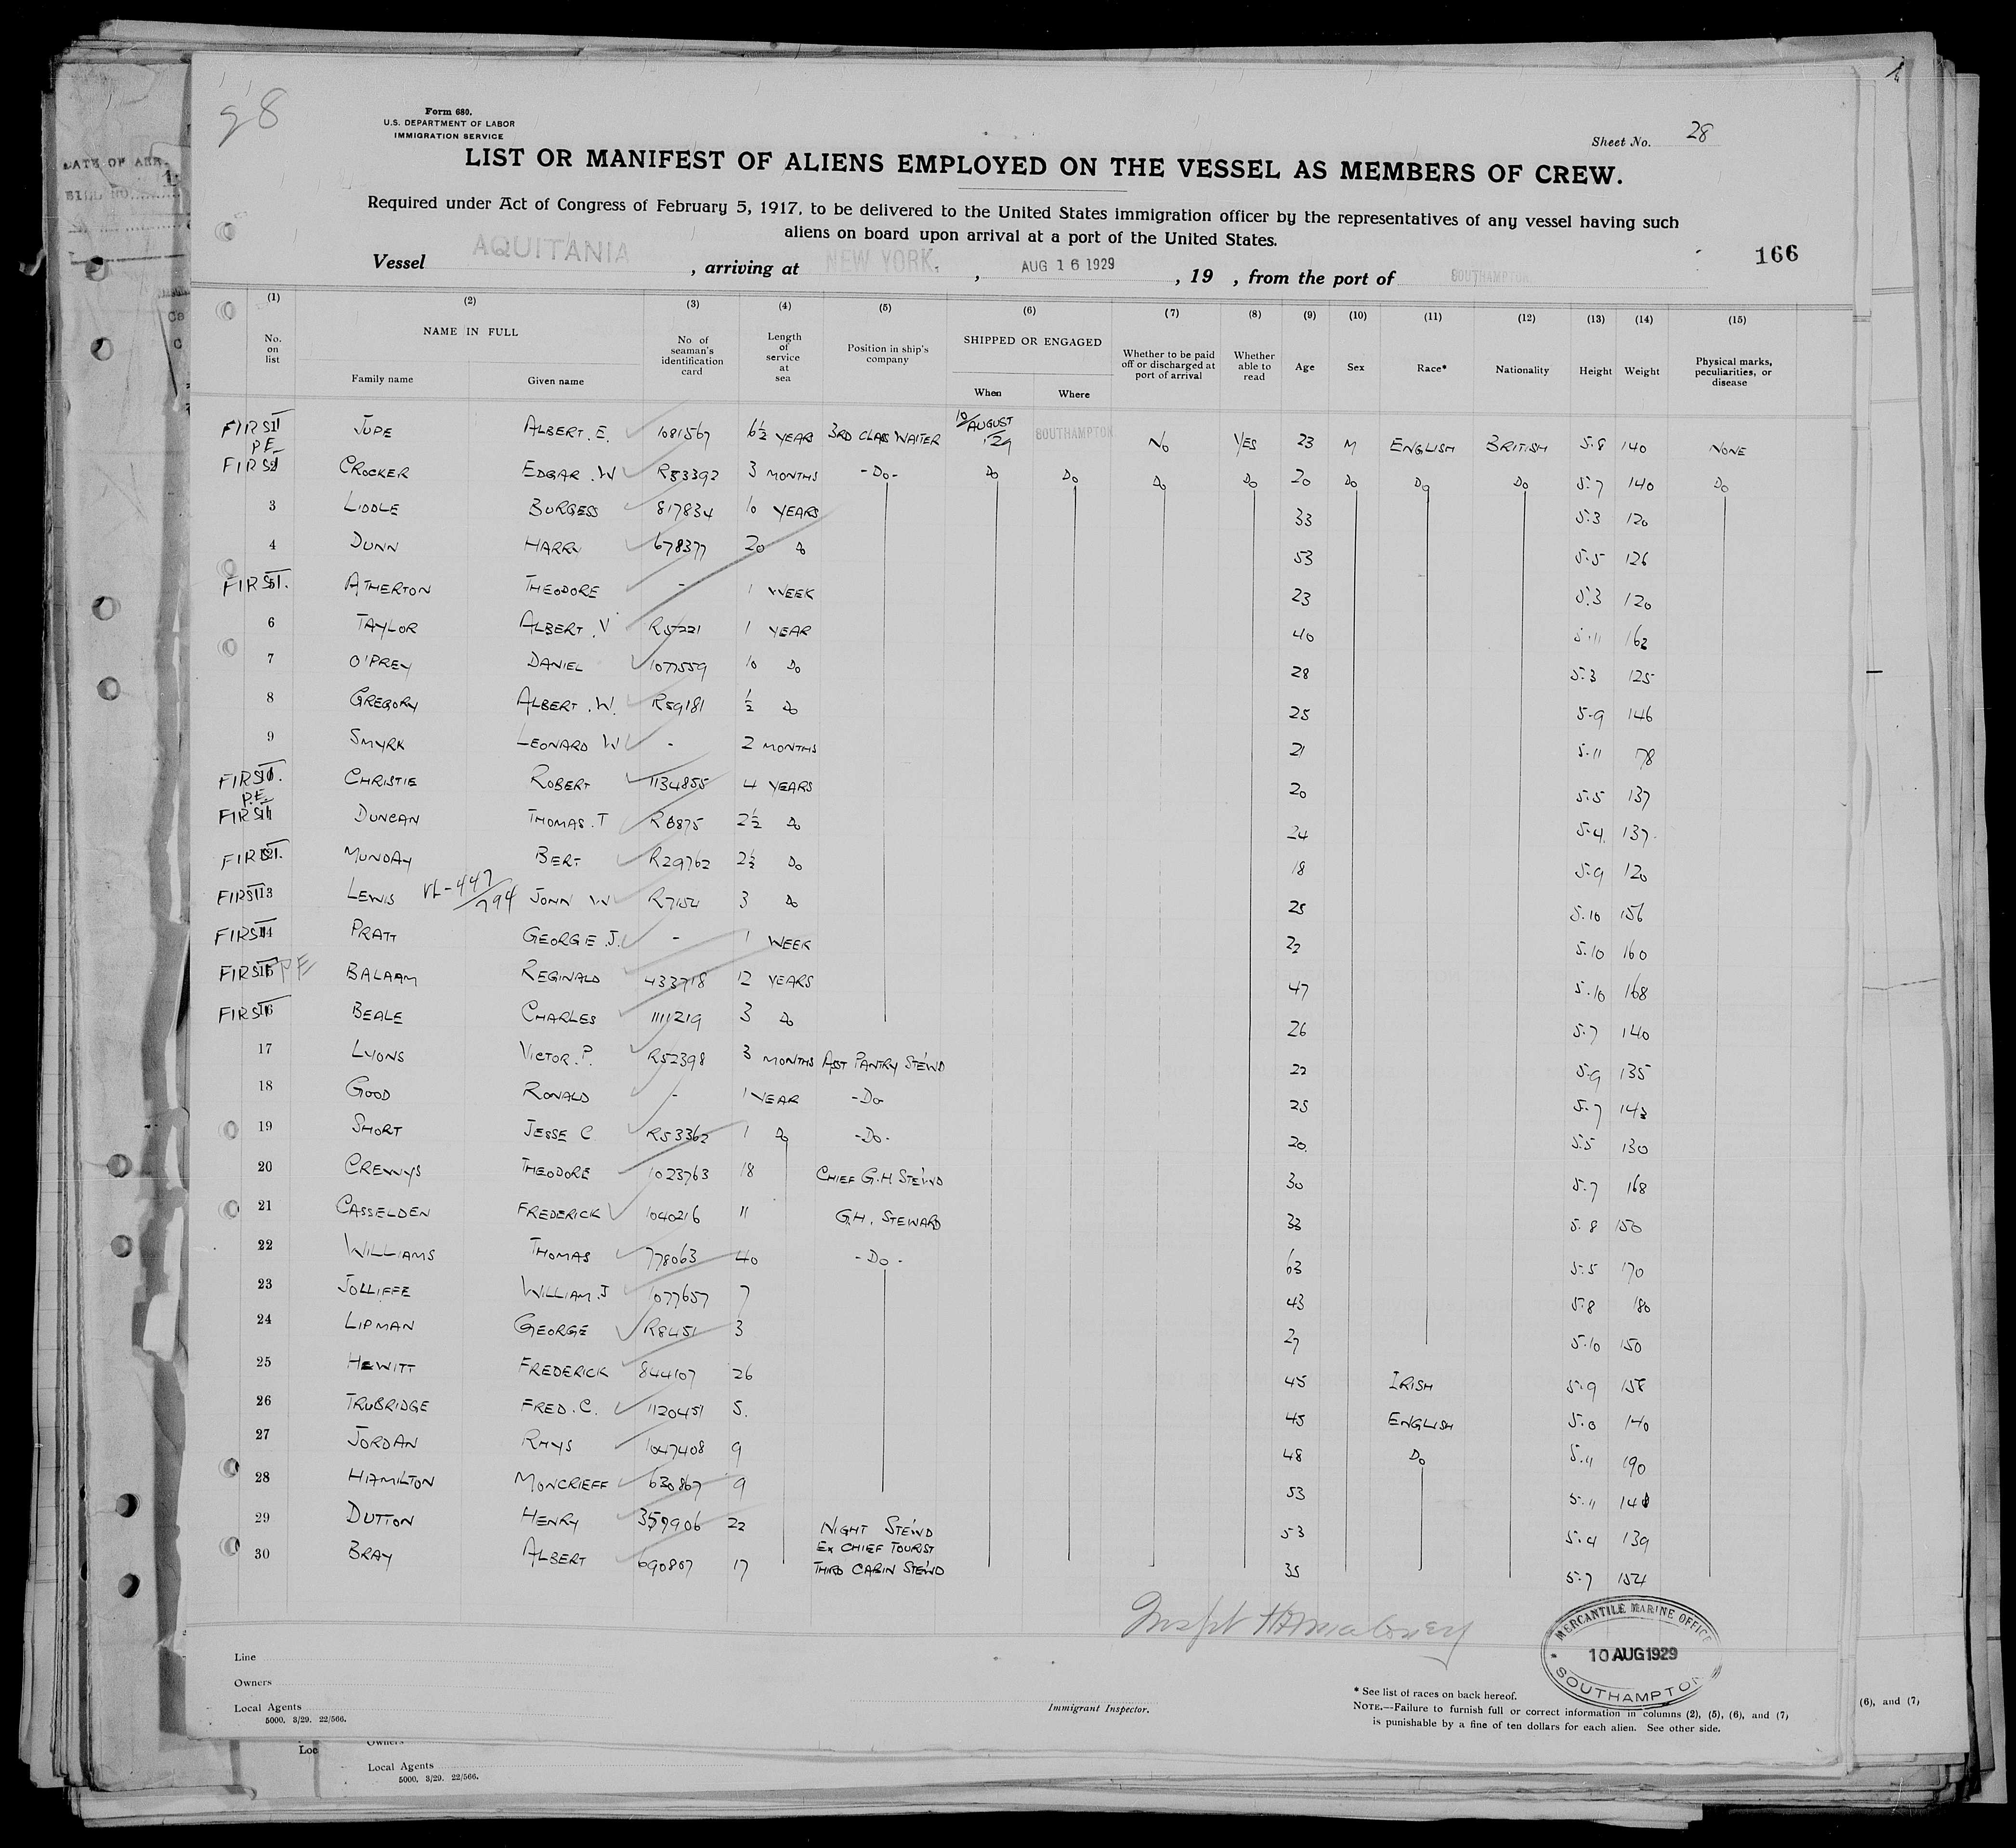 98
Form 680.
U.S. DEPARTMENT OF LABOR
IMMIGRATION SERVICE
Sheet No. 28
LIST OR MANIFEST OF ALIENS EMPLOYED ON THE VESSEL AS MEMBERS OF CREW.
Required under Act of Congress of February 5, 1917, to be delivered to the United States immigration officer by the representatives of any vessel having such
aliens on board upon arrival at a port of the United States.
166
Vessel AQUITANIA, arriving at NEW YORK., AUG 16 1929, 19 , from the port of SOUTHAMPTON
(1) (2) (3) (4) (5) (6) (7) (8) (9) (10) (11) (12) (13) (14) (15)
No. on list NAME IN FULL Family name Given name No. of seaman's identification card Length of service at sea Position in ship's company SHIPPED OR ENGAGED When Where Whether to be paid off or discharged at port of arrival Whether able to read Age Sex Race* Nationality Height Weight Physical marks, peculiarities, or disease
FIRST P.E. JUPE ALBERT.E. 1081567 6½ YEARS 3RD CLASS WAITER 10/AUGUST 29 SOUTHAMPTON No YES 23 M ENGLISH BRITISH 5.8 140 NONE
FIRST 2 CROCKER EDGAR.W R53392 3 MONTHS -Do- Do Do Do Do 20 Do Do Do 5.7 140 Do
3 LIDDLE BURGESS 817834 10 YEARS 33 5.3 120
4 DUNN HARRY 678377 20 Do 53 5.5 126
FIRST. ATHERTON THEODORE - 1 WEEK 23 5.3 120
6 TAYLOR ALBERT.V R5221 1 YEAR 40 5.11 162
7 O'PREY DANIEL 1077559 10 Do 28 5.3 125
8 GREGORY ALBERT.W. R59181 ½ Do 25 5.9 146
9 SMYRK LEONARD W - 2 MONTHS 21 5.11 178
FIRST 10. CHRISTIE ROBERT 1134855 4 YEARS 20 5.5 137
P.E. FIRST 11 DUNCAN THOMAS.T R6875 2½ Do 24 5.4. 137.
FIRST 12. MUNDAY BERT R29762 2½ Do 18 5.9 120
FIRST 13 LEWIS VL-447/794 JOHN W R7154 3 Do 25 5.10 156
FIRST 14 PRATT GEORGE.J. - 1 WEEK 22 5.10 160
FIRST 15 PE BALAAM REGINALD 433718 12 YEARS 47 5.10 168
FIRST 16 BEALE CHARLES 1111219 3 Do 26 5.7 140
17 LYONS VICTOR.P. R52398 3 MONTHS ASST PANTRY STE'WD 22 5.9 135
18 GOOD RONALD - 1 YEAR -Do- 25 5.7 143
19 SHORT JESSE C R53362 1 Do -Do- 20. 5.5 130
20 CREWYS THEODORE 1023763 18 CHIEF G.H STE'WD 30 5.7 168
21 CASSELDEN FREDERICK 1040216 11 G.H. STEWARD 33 5.8 150
22 WILLIAMS THOMAS 778063 40 -Do- 63 5.5 170
23 JOLLIFFE WILLIAM.J 1077657 7 43 5.8 180
24 LIPMAN GEORGE R8451 3 27 5.10 150
25 HEWITT FREDERICK 844107 26 45 IRISH 5.9 158
26 TRUBRIDGE FRED.C. 1120451 5. 45 ENGLISH 5.0 140
27 JORDAN RHYS 1047408 9 48 Do 5.11 190
28 HAMILTON MONCRIEFF 630867 9 53 5.11 148
29 DUTTON HENRY 359906 22 NIGHT STE'WD 53 5.4 139
30 BRAY ALBERT 690807 17 EX CHIEF TOURIST THIRD CABIN STE'WD 35 5.7 154
MERCANTILE MARINE OFFICE
10 AUG 1929
SOUTHAMPTON
Line
Owners
Local Agents
5000. 3/29. 22/566.
Immigrant Inspector.
* See list of races on back hereof.
NOTE.—Failure to furnish full or correct information in columns (2), (5), (6), and (7)
is punishable by a fine of ten dollars for each alien. See other side.
(6), and (7)
Loc
Owners
Local Agents
5000. 3/29. 22/566.